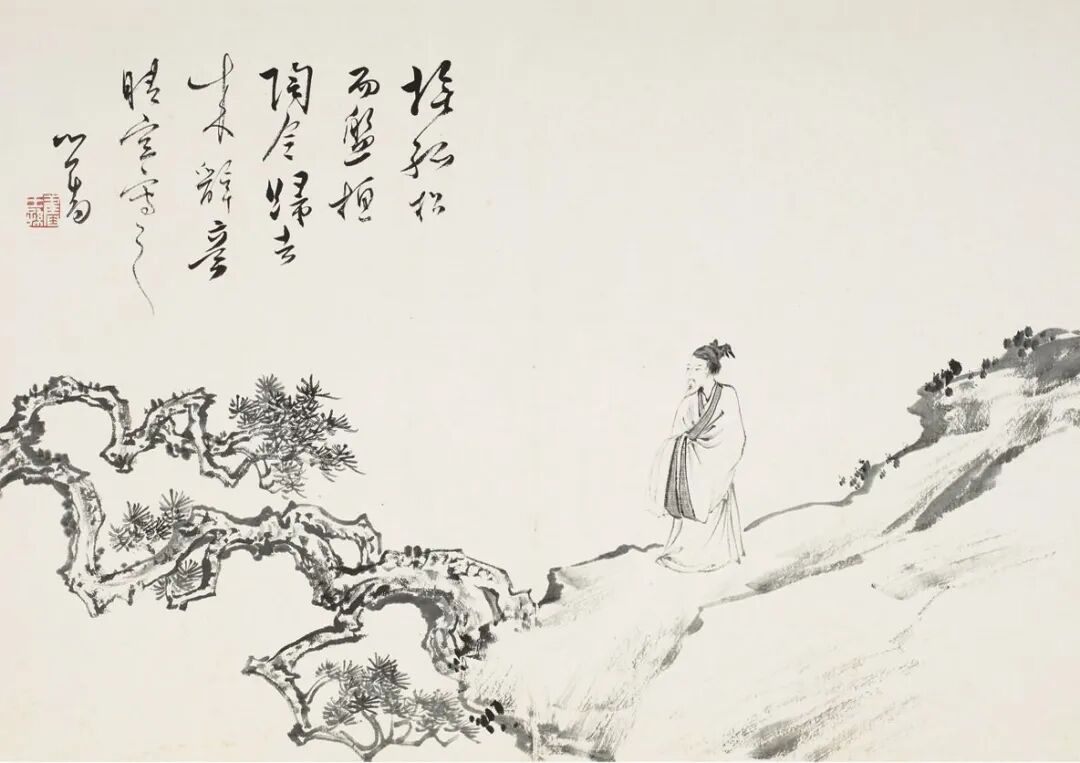 撫孤松
而盤桓
陶令歸去
来辭意
晴窓寫之
心畬